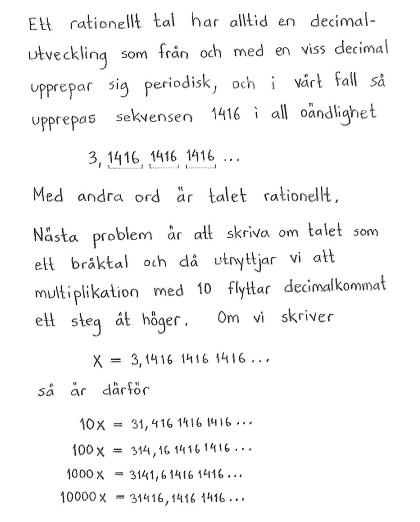 Ett rationellt tal har alltid en decimal-
utveckling som från och med en viss decimal
upprepar sig periodisk, och i vårt fall så
upprepas sekvensen 1416 i all oändlighet
3, 1416 1416 1416 ...
Med andra ord är talet rationellt.
Nästa problem är att skriva om talet som
ett bråktal och då utnyttjar vi att
multiplikation med 10 flyttar decimalkommat
ett steg åt höger. Om vi skriver
x = 3,1416 1416 1416 ...
så är därför
10x = 31,416 1416 1416 ...
100x = 314,16 1416 1416 ...
1000x = 3141,6 1416 1416 ...
10000x = 31416,1416 1416 ...